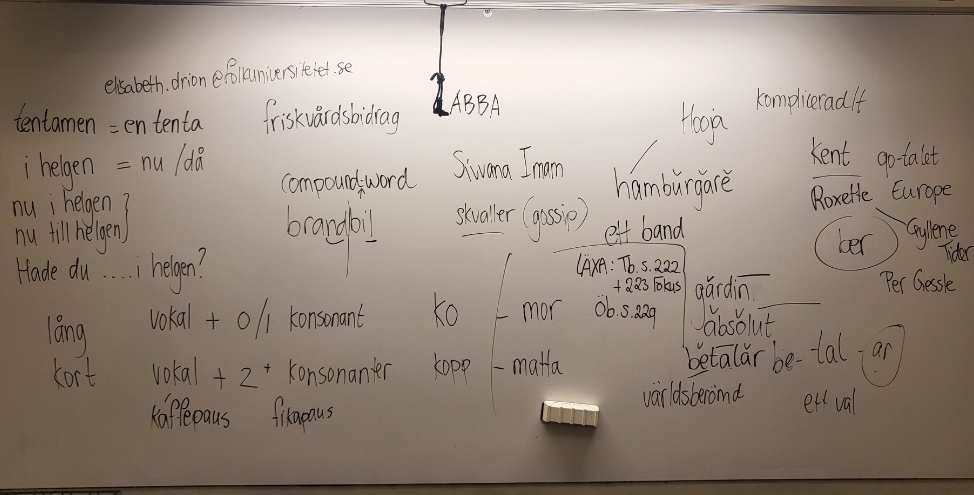 elisabeth.drion@folkuniversitetet.se
tentamen = en tenta
i helgen = nu / då
nu i helgen }
nu till helgen }
Hade du .... i helgen?
friskvårdsbidrag
compound-word
brandbil
ABBA
Siwana Imam
skvaller (gossip)
Hooja
hamburgare
ett band
komplicerad/t
Kent 90-talet
Roxette Europe
ber
Gyllene
Tider
Per Gessle
LÄXA: Tb.s.222
+ 223 Fokus
Öb.s.229
lång vokal + 0/1 konsonant
kort vokal + 2+ konsonanter
kaffepaus fikapaus
ko - mor
kopp - matta
gardin
absolut
betalar be-tal-ar
världsberömd
ett val